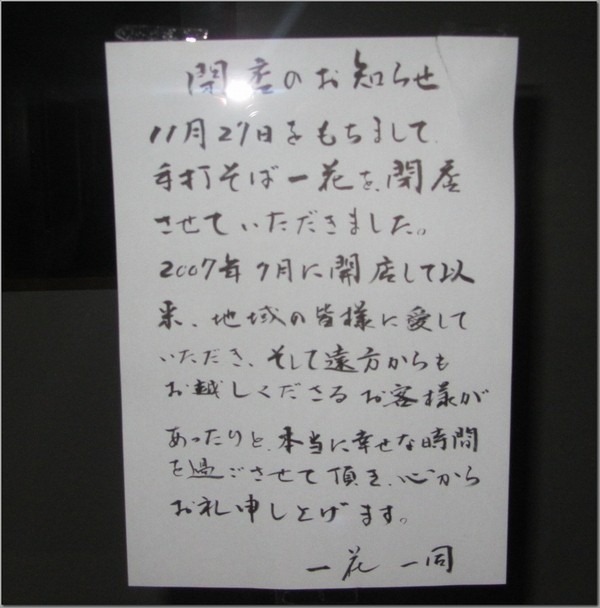 閉店のお知らせ
11月27日をもちまして、
手打そば一花を、閉店
させていただきました。
2007年7月に開店して以
来、地域の皆様に愛して
いただき、そして遠方からも
お越しくださるお客様が
あったりと、本当に幸せな時間
を過ごさせて頂き、心から
お礼申し上げます。
一花 一同